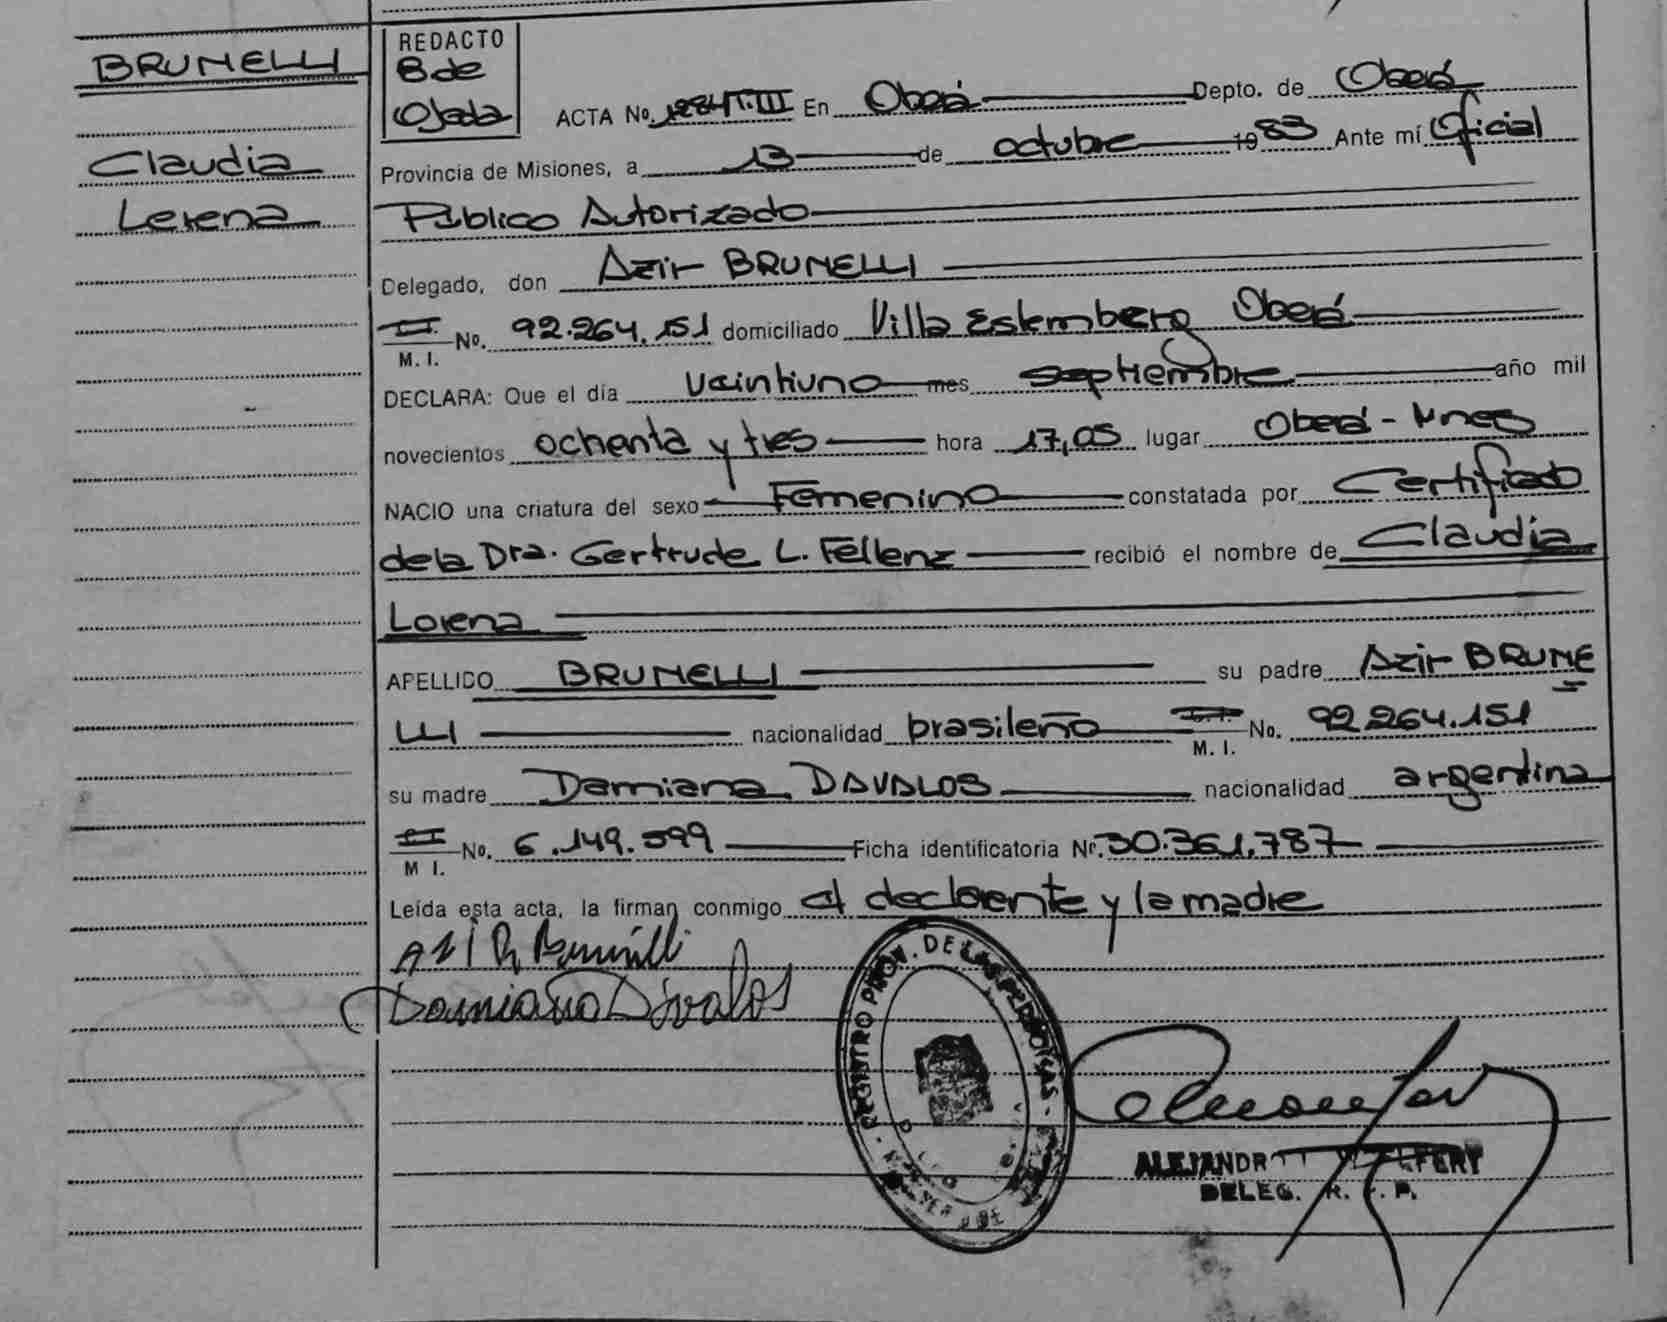 BRUNELLI
Claudia
Lorena
REDACTO
B de
Ojeda
ACTA No. 1284 T. III En Oberá Depto. de Oberá
Provincia de Misiones, a 13 de octubre 1983 Ante mí Oficial
Público Autorizado
Delegado, don Azir BRUNELLI
M. I. No. 92.264.151 domiciliado Villa Oberá
DECLARA: Que el día veintiuno mes septiembre año mil
novecientos ochenta y tres hora 17,05 lugar Oberá - Mnes
NACIO una criatura del sexo Femenino constatada por Certificado
de la Dra. Gertrude L. Fellenz recibió el nombre de Claudia
Lorena
APELLIDO BRUNELLI su padre Azir BRUNE
LLI nacionalidad brasileño M. I. No. 92.264.151
su madre Damiana DAVALOS nacionalidad argentina
M I. No. 6.149.599 Ficha identificatoria Nº. 30.361.787
Leída esta acta, la firman conmigo el declarante y la madre
AZIR Brunelli
Damiana Dávalos
REGISTRO PROV. DE LAS PERSONAS
DELEG. R. P.